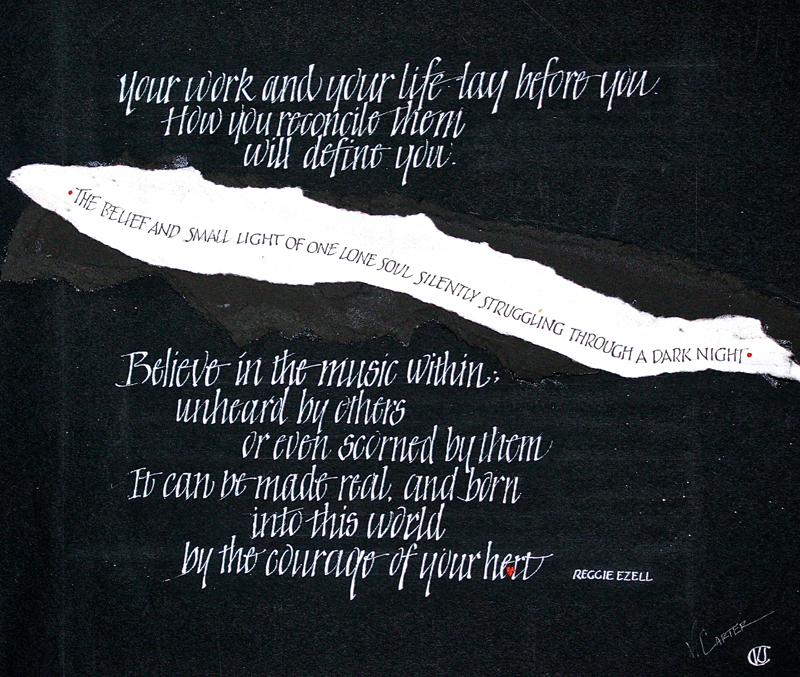 your work and your life lay before you.
How you reconcile them
will define you.
• THE BELIEF AND SMALL LIGHT OF ONE LONE SOUL SILENTLY STRUGGLING THROUGH A DARK NIGHT •
Believe in the music within;
unheard by others
or even scorned by them
It can be made real, and born
into this world
by the courage of your he♥rt
REGGIE EZELL
V. CARTER